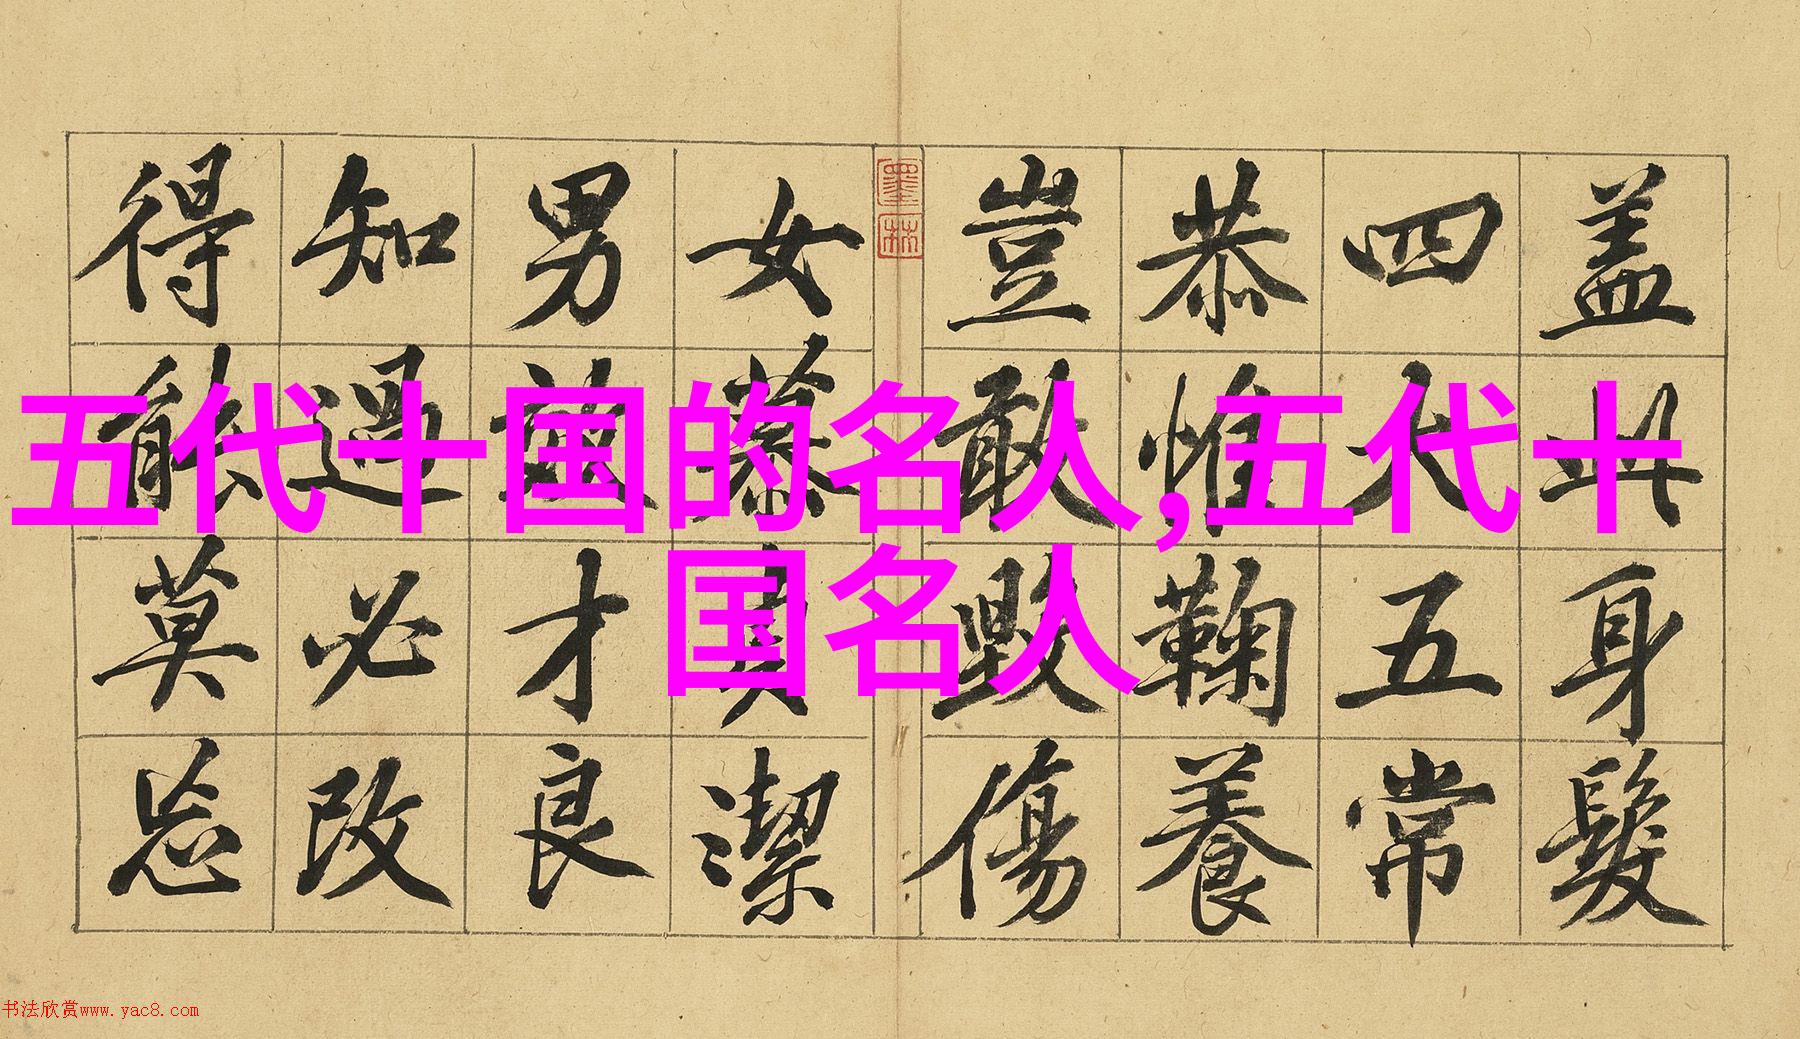 五代十国的名人,五代十
国名人
盖此身髮
四大五常
恭惟鞠養
豈敢毀傷
墨林
女慕貞潔
男才良
知過必改
得能莫忘
书法欣赏www.yac8.com